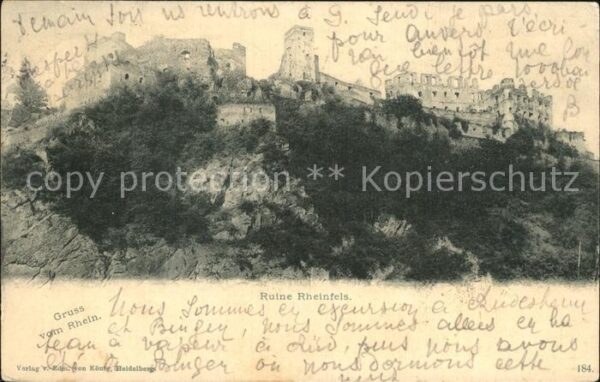 Demain soir nous rentrons à G. Jeudi je pars
pour anvers. Écri
bientôt que
lettre
B
copy protection ** Kopierschutz
Ruine Rheinfels.
Gruss
vom Rhein.
Nous sommes en excursion à Rüdesheim
et Bingen, nous sommes allés en ba
teau à vapeur à Rüd, puis nous avons
été à Bingen où nous dormons cette
nuit
Verlag v. Edm. von König, Heidelberg.
184.